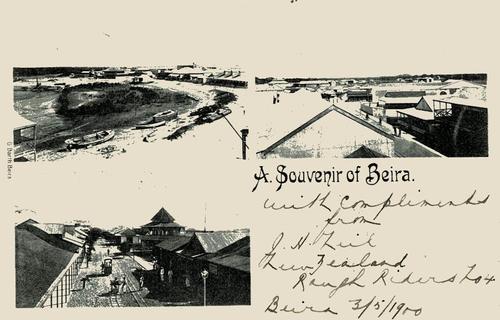 G Barth Beira
A Souvenir of Beira.
with compliments
from
J. H.
New Zealand
Rough Riders No 4
Beira 3/5/1900